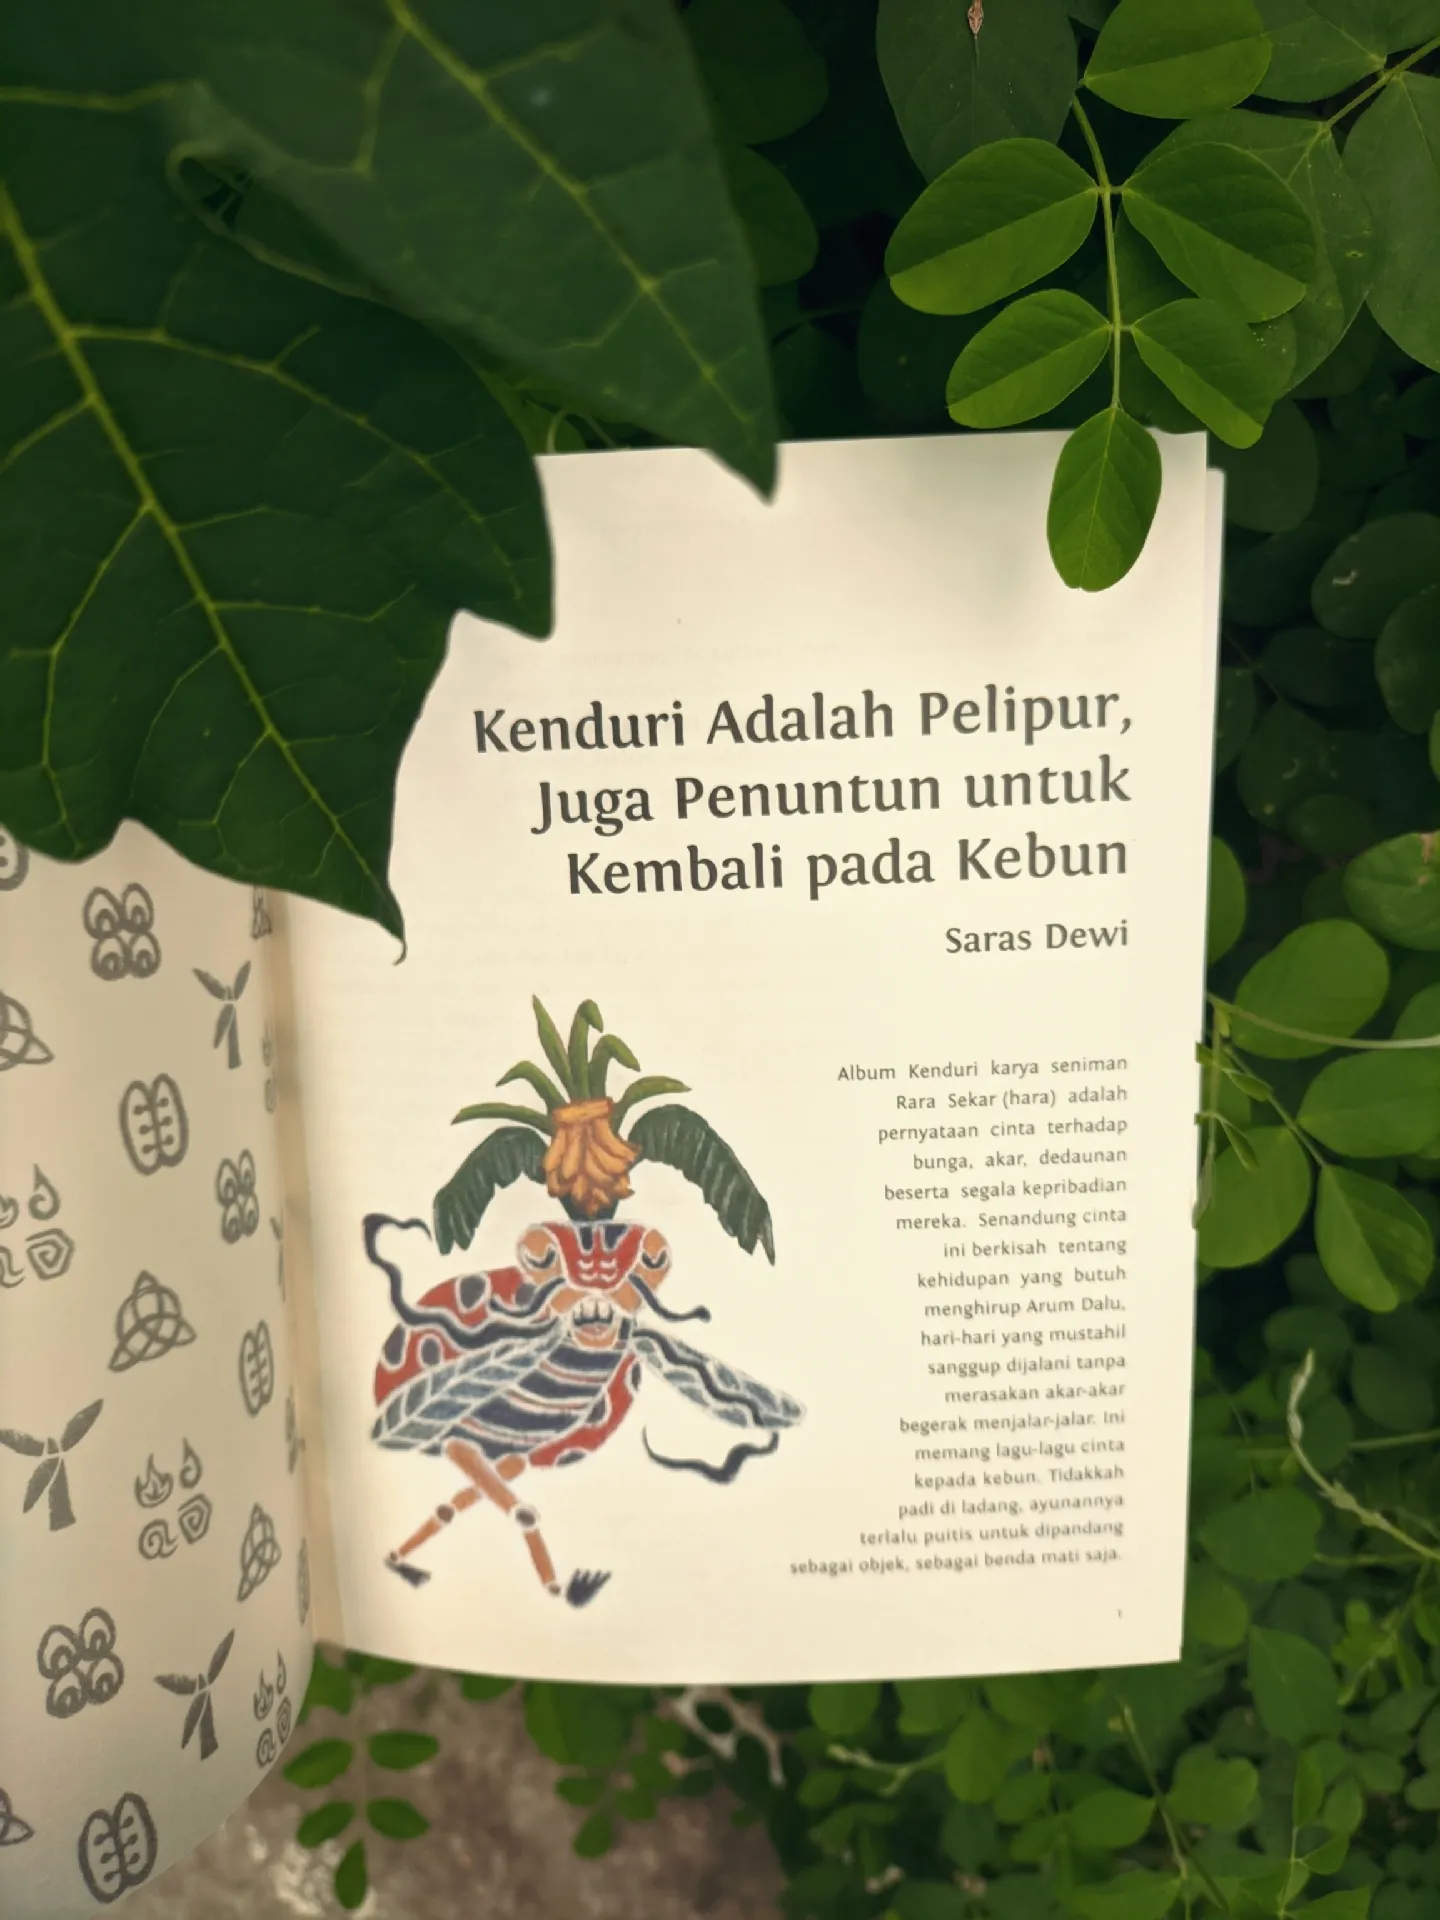 Kenduri Adalah Pelipur,
Juga Penuntun untuk
Kembali pada Kebun
Saras Dewi
Album Kenduri karya seniman
Rara Sekar (hara) adalah
pernyataan cinta terhadap
bunga, akar, dedaunan
beserta segala kepribadian
mereka. Senandung cinta
ini berkisah tentang
kehidupan yang butuh
menghirup Arum Dalu,
hari-hari yang mustahil
sanggup dijalani tanpa
merasakan akar-akar
begerak menjalar-jalar. Ini
memang lagu-lagu cinta
kepada kebun. Tidakkah
padi di ladang, ayunannya
terlalu puitis untuk dipandang
sebagai objek, sebagai benda mati saja.
1